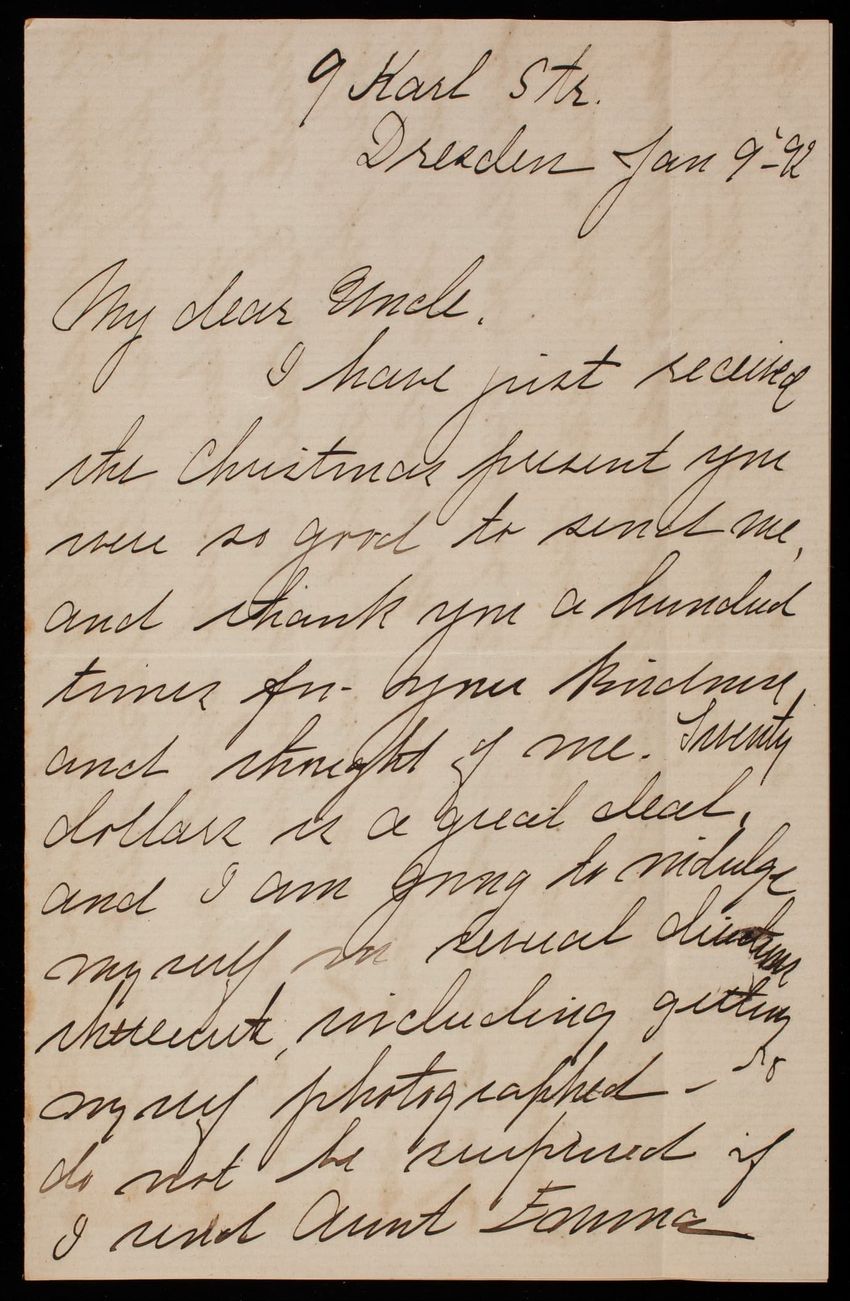 9 Karl Str.
Dresden Jan 9'-92
My dear Uncle.
I have just received
the Christmas present you
were so good to send me,
and thank you a hundred
times for your kindness,
and thought of me. Twenty
dollars is a great deal,
and I am going to indulge
myself in several directions
therewith, including getting
myself photographed - so
do not be surprised if
I send Aunt Emma